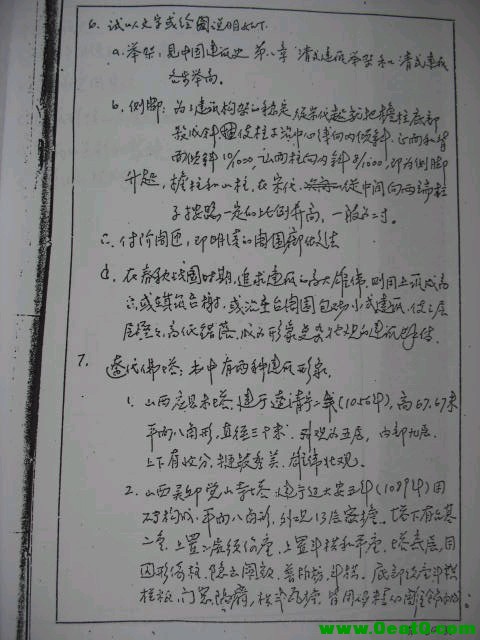 6. 试以文字或绘图说明如下.
a. 举架, 见中国建筑史 第八章 清式建筑举架和清式建筑
举高.
b. 侧脚: 为了建筑构架的稳定 宋代起就把檐柱底部
中心 向内倾斜. 正面和背
面倾斜10/1000, 山面柱向内斜8/1000, 即为侧脚
升起, 檐柱和山柱, 在宋代, 从中间向两端柱
子按照一定的比例升高, 一般为二寸.
c. 付阶周匝, 即明清的周围廊做法
d. 在春秋战国时期, 追求建筑的高大雄伟, 则用土筑成高
台, 或 台榭, 或沿土台周围包以小式建筑, 使之层
层叠叠, 高低错落, 成为形象 壮观的建筑
7. 辽代佛塔: 书中有两种建筑形象.
1. 山西应县木塔, 建于辽清宁二年(1056年), 高67.67米
平面八角形, 直径三十米. 外观为五层, 内部九层.
上下有收分, 秀美. 雄伟壮观.
2. 山西灵邱觉山寺塔 建于辽大安五年(1089年)用
砖构成. 平面八角形, 外观13层密檐. 塔下有台基
二重, 上置二层须弥座, 上置斗栱和平座. 塔底层, 用
圆形倚柱. 隐出阑额, 普柏枋, 斗栱. 底部
门窗
www.OeatQ.com